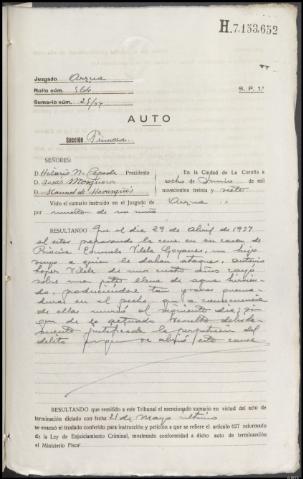 H.7.153.652
Juzgado Arzua
Rollo núm. 564
S. P. 1ª
Sumario núm. 25/37
AUTO
Sección Primera
SEÑORES:
D. Hilario N. Presidente
D.
D. Manuel de
En la Ciudad de La Coruña a
ocho de Junio de mil
novecientos treinta y siete
Visto el sumario instruido en el Juzgado de Arzua
por muerte de un niño
RESULTANDO Que el dia 29 de Abril de 1937
al estar preparando la cena en su casa de
Manuela Vilela Goyanes, un hijo
suyo a quien le daban ataques, Antonio
Vilela de unos cuatro años cayó
sobre una llena de agua hirvien-
do, produciendose tan graves quema-
duras en el pecho, que a consecuencia
de ellas murió al siguiente dia; sin
que de lo actuado resulte debida-
mente justificada la perpetración del
delito por que se alzó esta causa
RESULTANDO que remitido a este Tribunal el mencionado sumario en virtud del auto de
terminación dictado con fecha 21 de Mayo último
se evacuó el traslado conferido para instrucción y petición a que se refiere el artículo 627 reformado
de la Ley de Enjuiciamiento Criminal, mostrando conformidad a dicho auto de terminación
el Ministerio Fiscal.